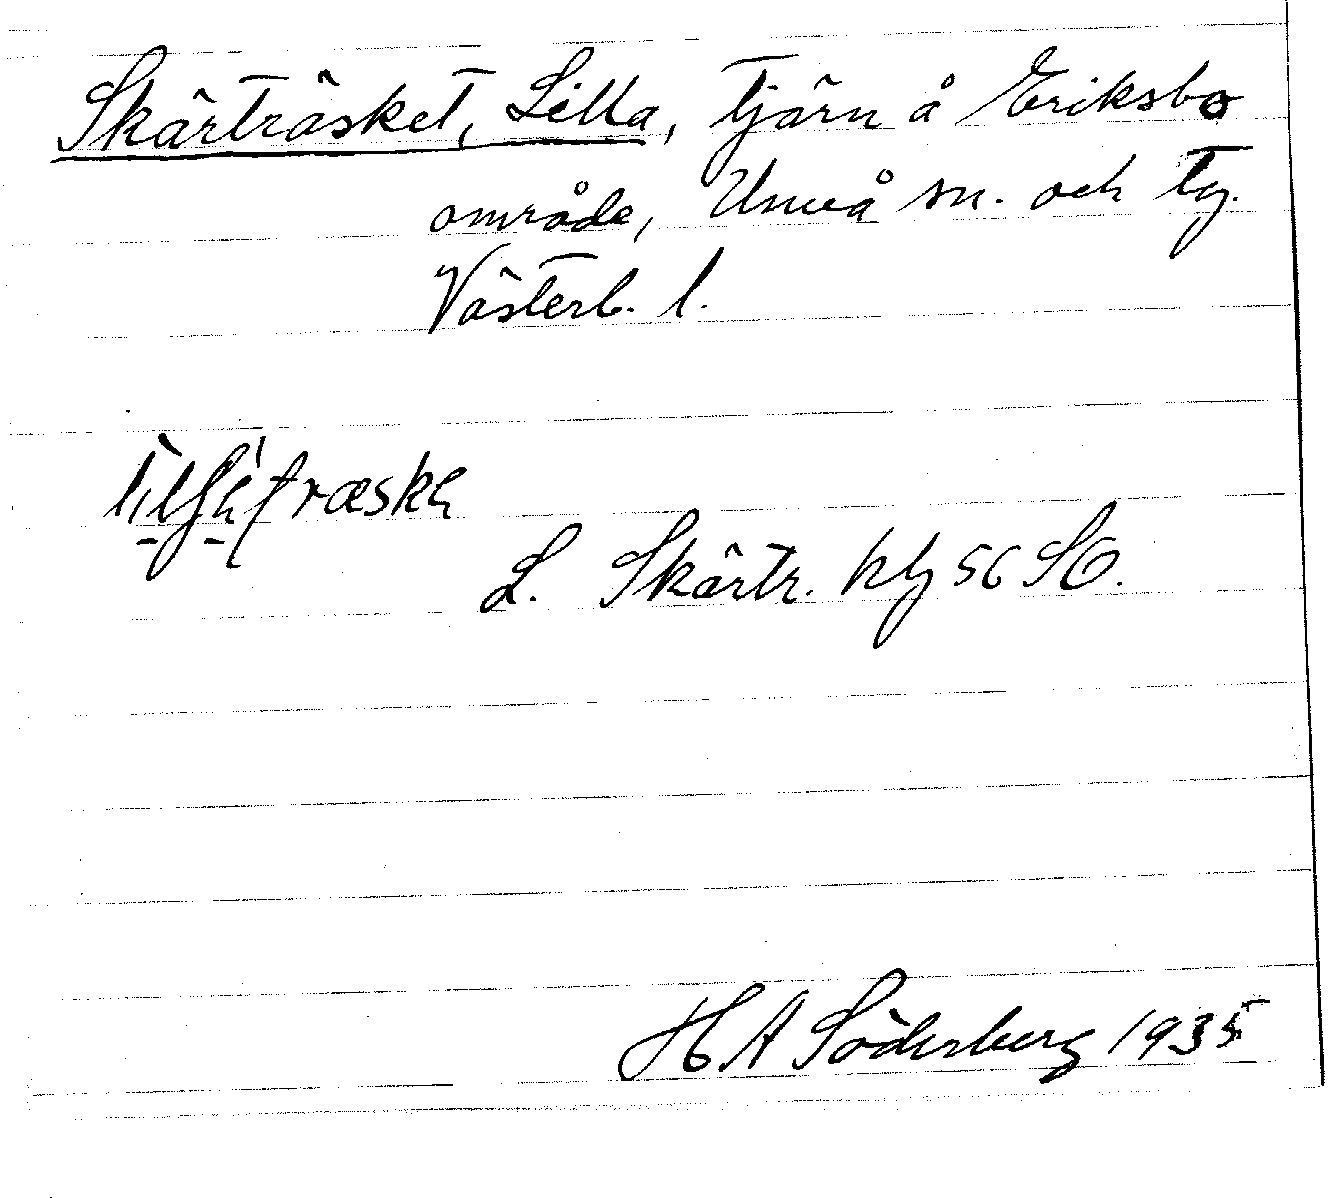 Skärträsket, Lilla, tjärn å Eriksbo
område, Umeå sn. och tg.
Västerb. l.
L. Skärtr. hbg 56 SO.
H A Söderberg 1935